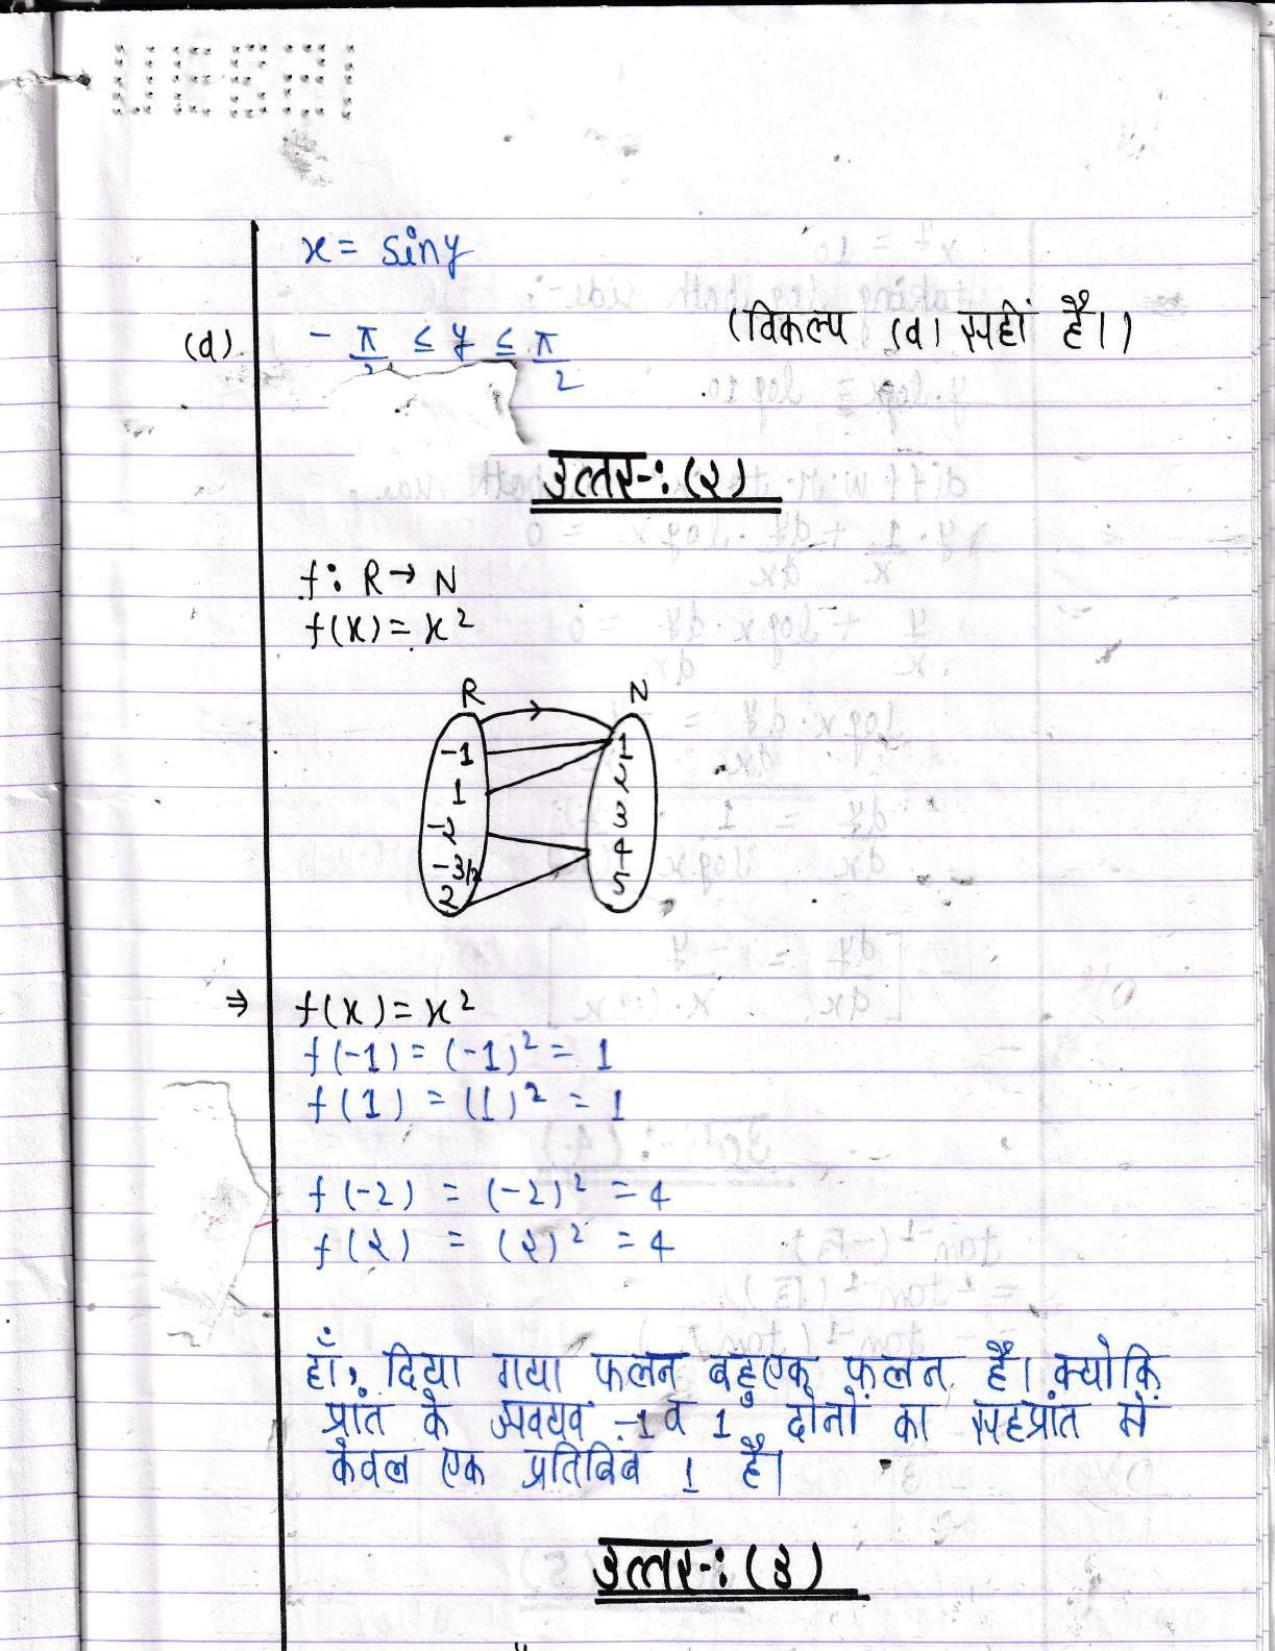 x = siny
(d) - π/2 ≤ y ≤ π/2 (विकल्प (d) सहीं है।)
उत्तर-: (२)
f: R → N
f(x) = x²
R N
-1 1
1 2
-2 3
-3/2 4
2 5
⇒ f(x) = x²
f(-1) = (-1)² = 1
f(1) = (1)² = 1
f(-2) = (-2)² = 4
f(2) = (2)² = 4
हाँ, दिया गया फलन बहुएक फलन है। क्योकि
प्रांत के अवयव -1 व 1 दोनों का सहप्रांत में
केवल एक प्रतिबिब 1 है।
उत्तर-: (३)